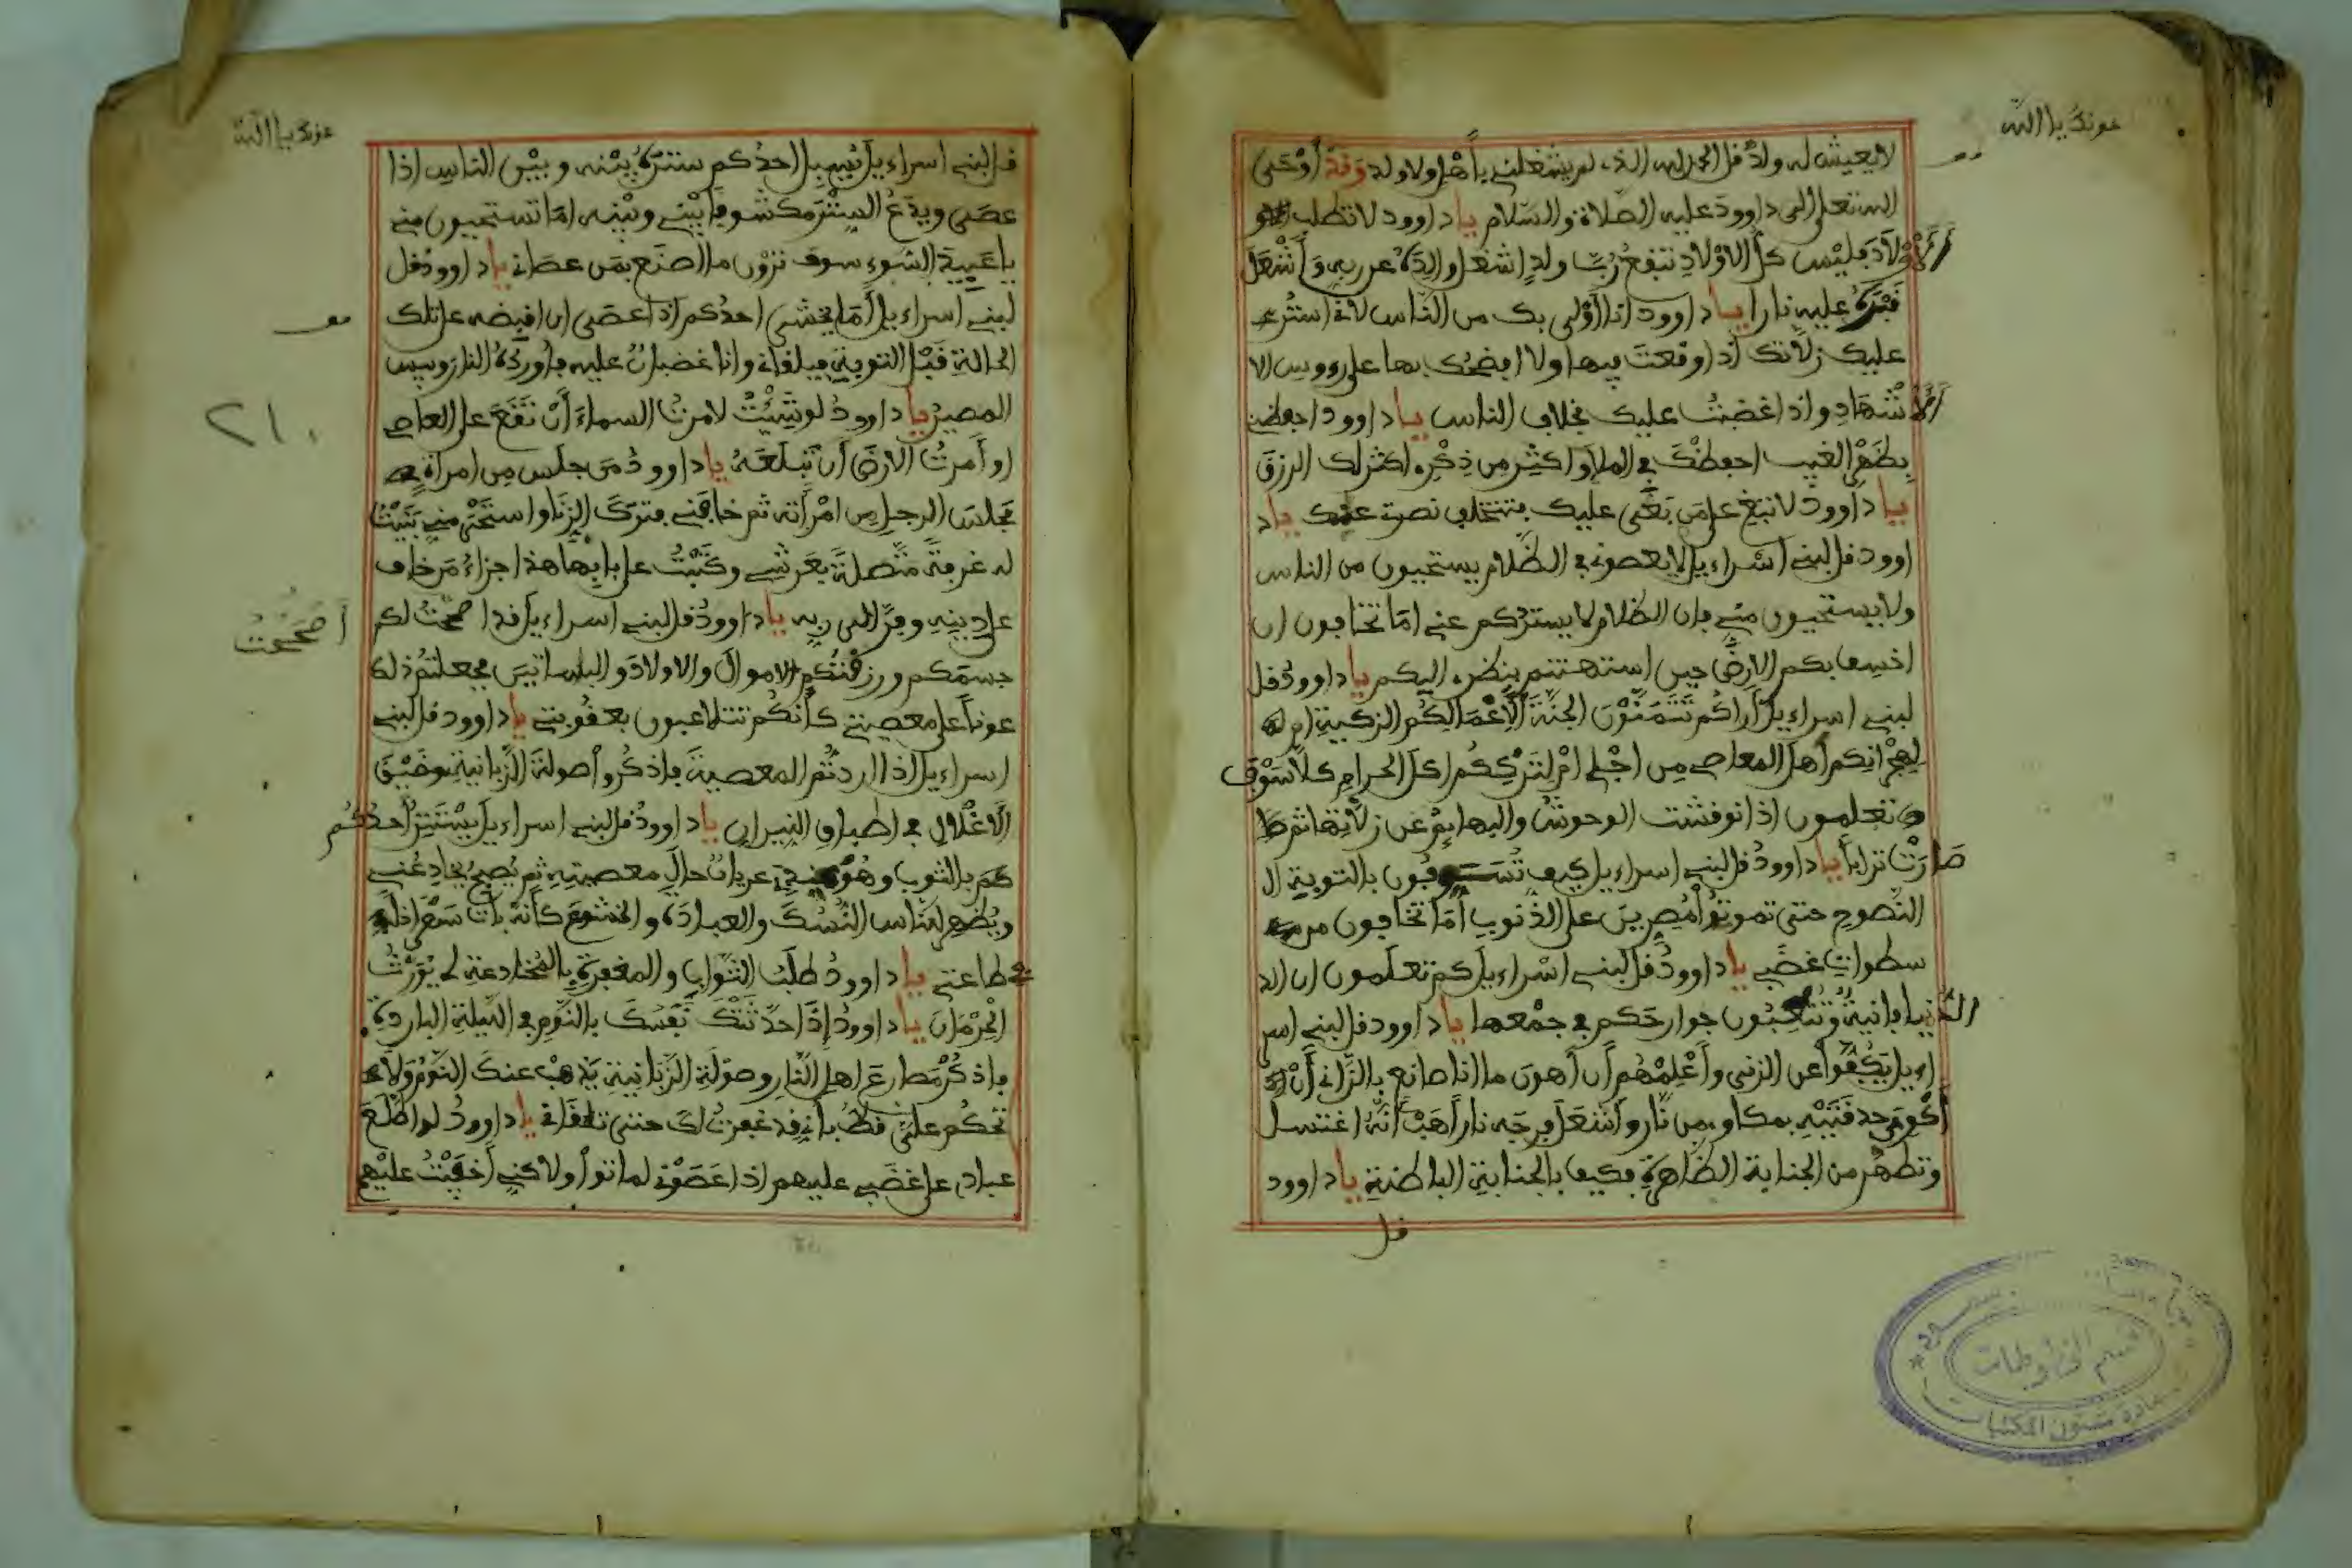 عونك يا الله
لا يعيش له ولد قل الحمد لله الذي لم يشغلني بأهل ولا ولد وقد أوحى
الله تعلى إلى داوود عليه الصلاة والسلام يا داوود لا تطلب
الأولاد فليس كل الأولاد تنفع رب ولد اشغل والده عن ربه وأشعل
قبره عليه نارا يا داوود انا أولى بك من الناس لاني استر
عليك زلاتك إذا وقعت فيها ولا افضحك بها على رءوس الا
الأشهاد واذا غضبت عليك بخلاف الناس يا داوود احفظني
بظهر الغيب احفظك في الملإ وأكثر من ذكري اكثر لك الرزق
يا داوود لا تبغ على من بغى عليك فتتخلف نصرتي عنك يا د
اوود قل لبني اسراءيل لا يعصوني في الظلام يستحيون من الناس
ولا يستحيون مني فان الظلام لا يستركم عني اما تخافون ان
اخسف بكم الارض حين استهنتم بنظري اليكم يا داوود قل
لبني اسراءيل أراكم تتمنون الجنة ألأعمالكم الزكية ام
لهجرانكم أهل المعاصي من اجلي ام لترككم اكل الحرام كلا سوف
تعلمون اذا نوقشت الوحوش والبهايم عن زلاتها ثم
صارت ترابا يا داوود قل لبني اسراءيل كيف تسوفون بالتوبة ال
النصوح حتى تموتوا مصرين على الذنوب أما تخافون من
سطوات غضبي يا داوود قل لبني اسراءيل كم تعلمون ان الد
الدنيا فانية وتتعبون جوارحكم في جمعها يا داوود قل لبني اسر
اءيل يكفوا عن الزنى وأعلمهم أن أهون ما انا صانع بالزاني أن
أكوي حدقتيه بمكاوي من نار وأشعل فرجه نارا هب أنه اغتسل
وتطهر من الجنابة الظاهرة فكيف بالجنابة الباطنة يا داوود
قل
قسم المخطوطات
عمادة شئون المكتبات
عونك يا الله
قل لبني اسراءيل يسبل احدكم ستره بينه وبين الناس اذا
عصى ويدع الستر مكشوفا بيني وبينه اما تستحيون مني
يا عبيد السوء سوف ترون ما اصنع بمن عصاني يا داوود قل
لبني اسراءيل أما يخشى احدكم اذا عصى ان اقبضه على تلك
الحالة قبل التوبة فيلقاني وانا غضبان عليه فأورده النار وبيس
المصير يا داوود لو شيت لامرت السماء أن تقع على العاصي
او أمرت الارض أن تبلعه يا داوود من جلس من امراة
مجلس الرجل من امرأته ثم خافني فترك الزنا واستحى مني بنيت
له غرفة متصلة بعرشي وكتبت على بابها هذا جزاء من خاف
على دينه وفر إلى ربه يا داوود قل لبني اسراءيل قد اصححت لكم
أصححت
جسمكم ورزقتكم الاموال والاولاد والبساتين فجعلتم ذلك
عونا على معصيتي كأنكم تتلاعبون بعقوبتي يا داوود قل لبني
اسراءيل اذا اردتم المعصية فاذكروا صولة الزبانية وضيق
الاغلال في اطباق النيران يا داوود قل لبني اسراءيل يستتر أحدكم
كم بالثوب وهو عريان حال معصيته ثم يصبح يخادعني
ويظهر للناس النسك والعبادة والخشوع كأنه بات ساهرا
في طاعتي يا داوود طلب الثواب والمغفرة بالمخادعة لي يورث
الحرمان يا داوود إذا حدثتك نفسك بالنوم في الليلة الباردة
فاذكر مصارع اهل النار وصولة الزبانية يذهب عنك النوم ولا
تحكم على قط باني قد غفرت لك حتى تلقاني يا داوود لو اطلع
عبادي على غضبي عليهم اذا عصوني لماتوا ولاكني أخفيت عليهم